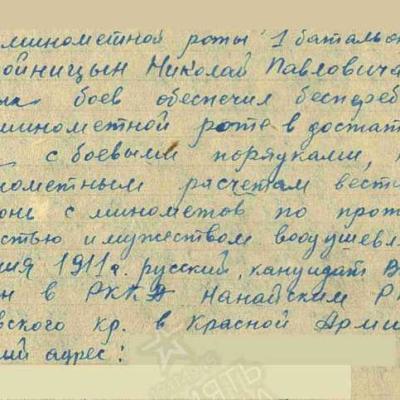 минометной роты 1 баталь
ойницын Николай Павлович
боев обеспечил беспереб
минометной роте в достат
с боевыми порядками,
нометным расчетам вест
онь с минометов по прот
стью и мужеством воодушевл
ия 1911 г. русский, кандидат В
н в РККА Нанайским Р
вского кр. в Красной Арми
ий адрес: